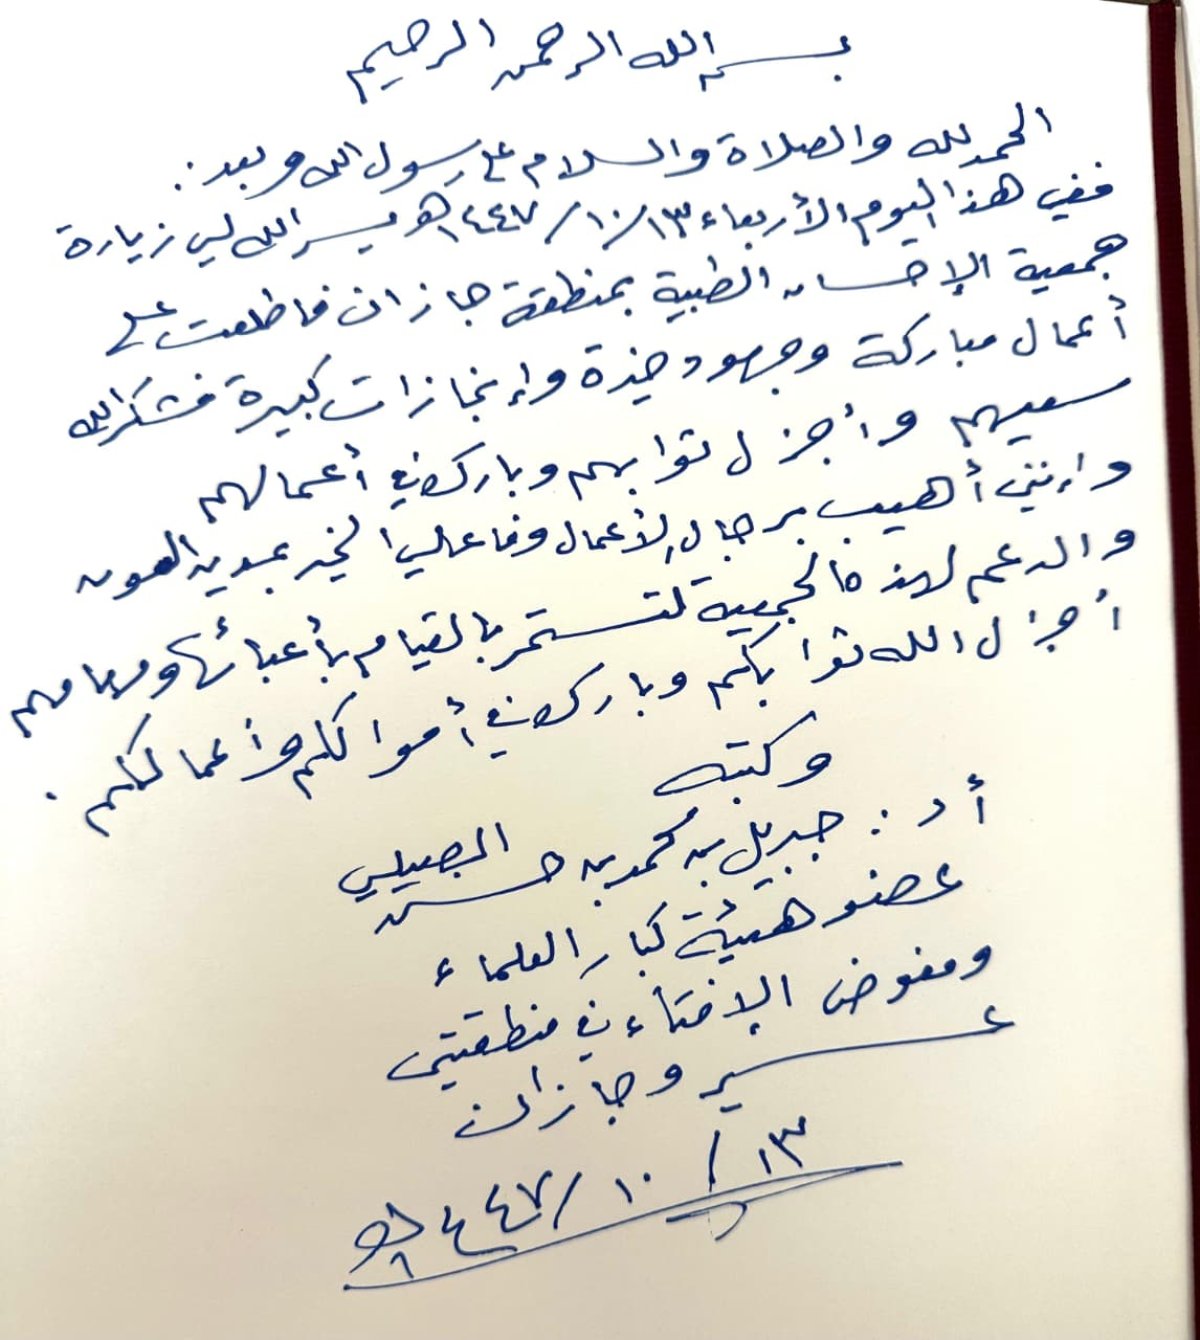 بسم الله الرحمن الرحيم
الحمد لله والصلاة والسلام على رسول الله وبعد:.
ففي هذا اليوم الأربعاء ١٣/١٠/١٤٤٧هـ يسر الله لي زيارة
جمعية الإحسان الطبية بمنطقة جازان فاطلعت على
أعمال مباركة وجهود خيرة وإنجازات كبيرة فشكر الله
سعيهم وأجزل ثوابهم وبارك في أعمالهم
وإنني أهيب برجال الأعمال وفاعلي الخير بمد يد العون
والدعم لهذه الجمعية لتستمر بالقيام بأعبائها ومهامهم
أجزل الله ثوابكم وبارك في أموالكم وأعمالكم .
وكتبه
أ د : جبريل بن محمد بن حسن البصيلي
عضو هيئة كبار العلماء
ومفوض الإفتاء في منطقتي
عسير وجازان
١٣ / ١٠ / ١٤٤٧هـ